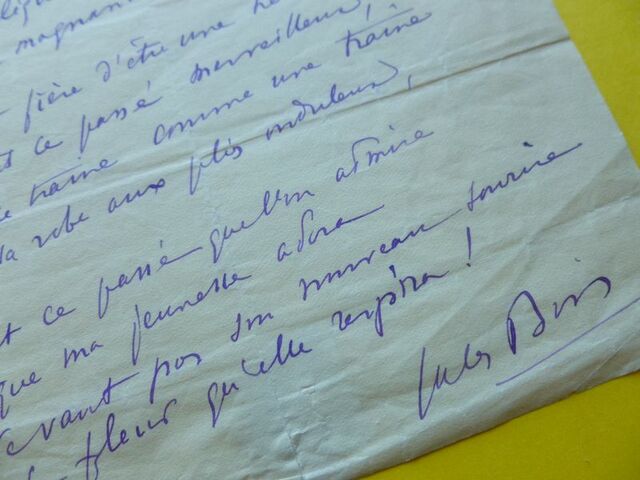 fière d'être une
ce passé merveilleux,
traîne comme une traîne
robe aux plis onduleux,
ce passé que l'on admire
que ma jeunesse adora
pas son nouveau sourire
fleur qu'elle respira !
Jules Bois